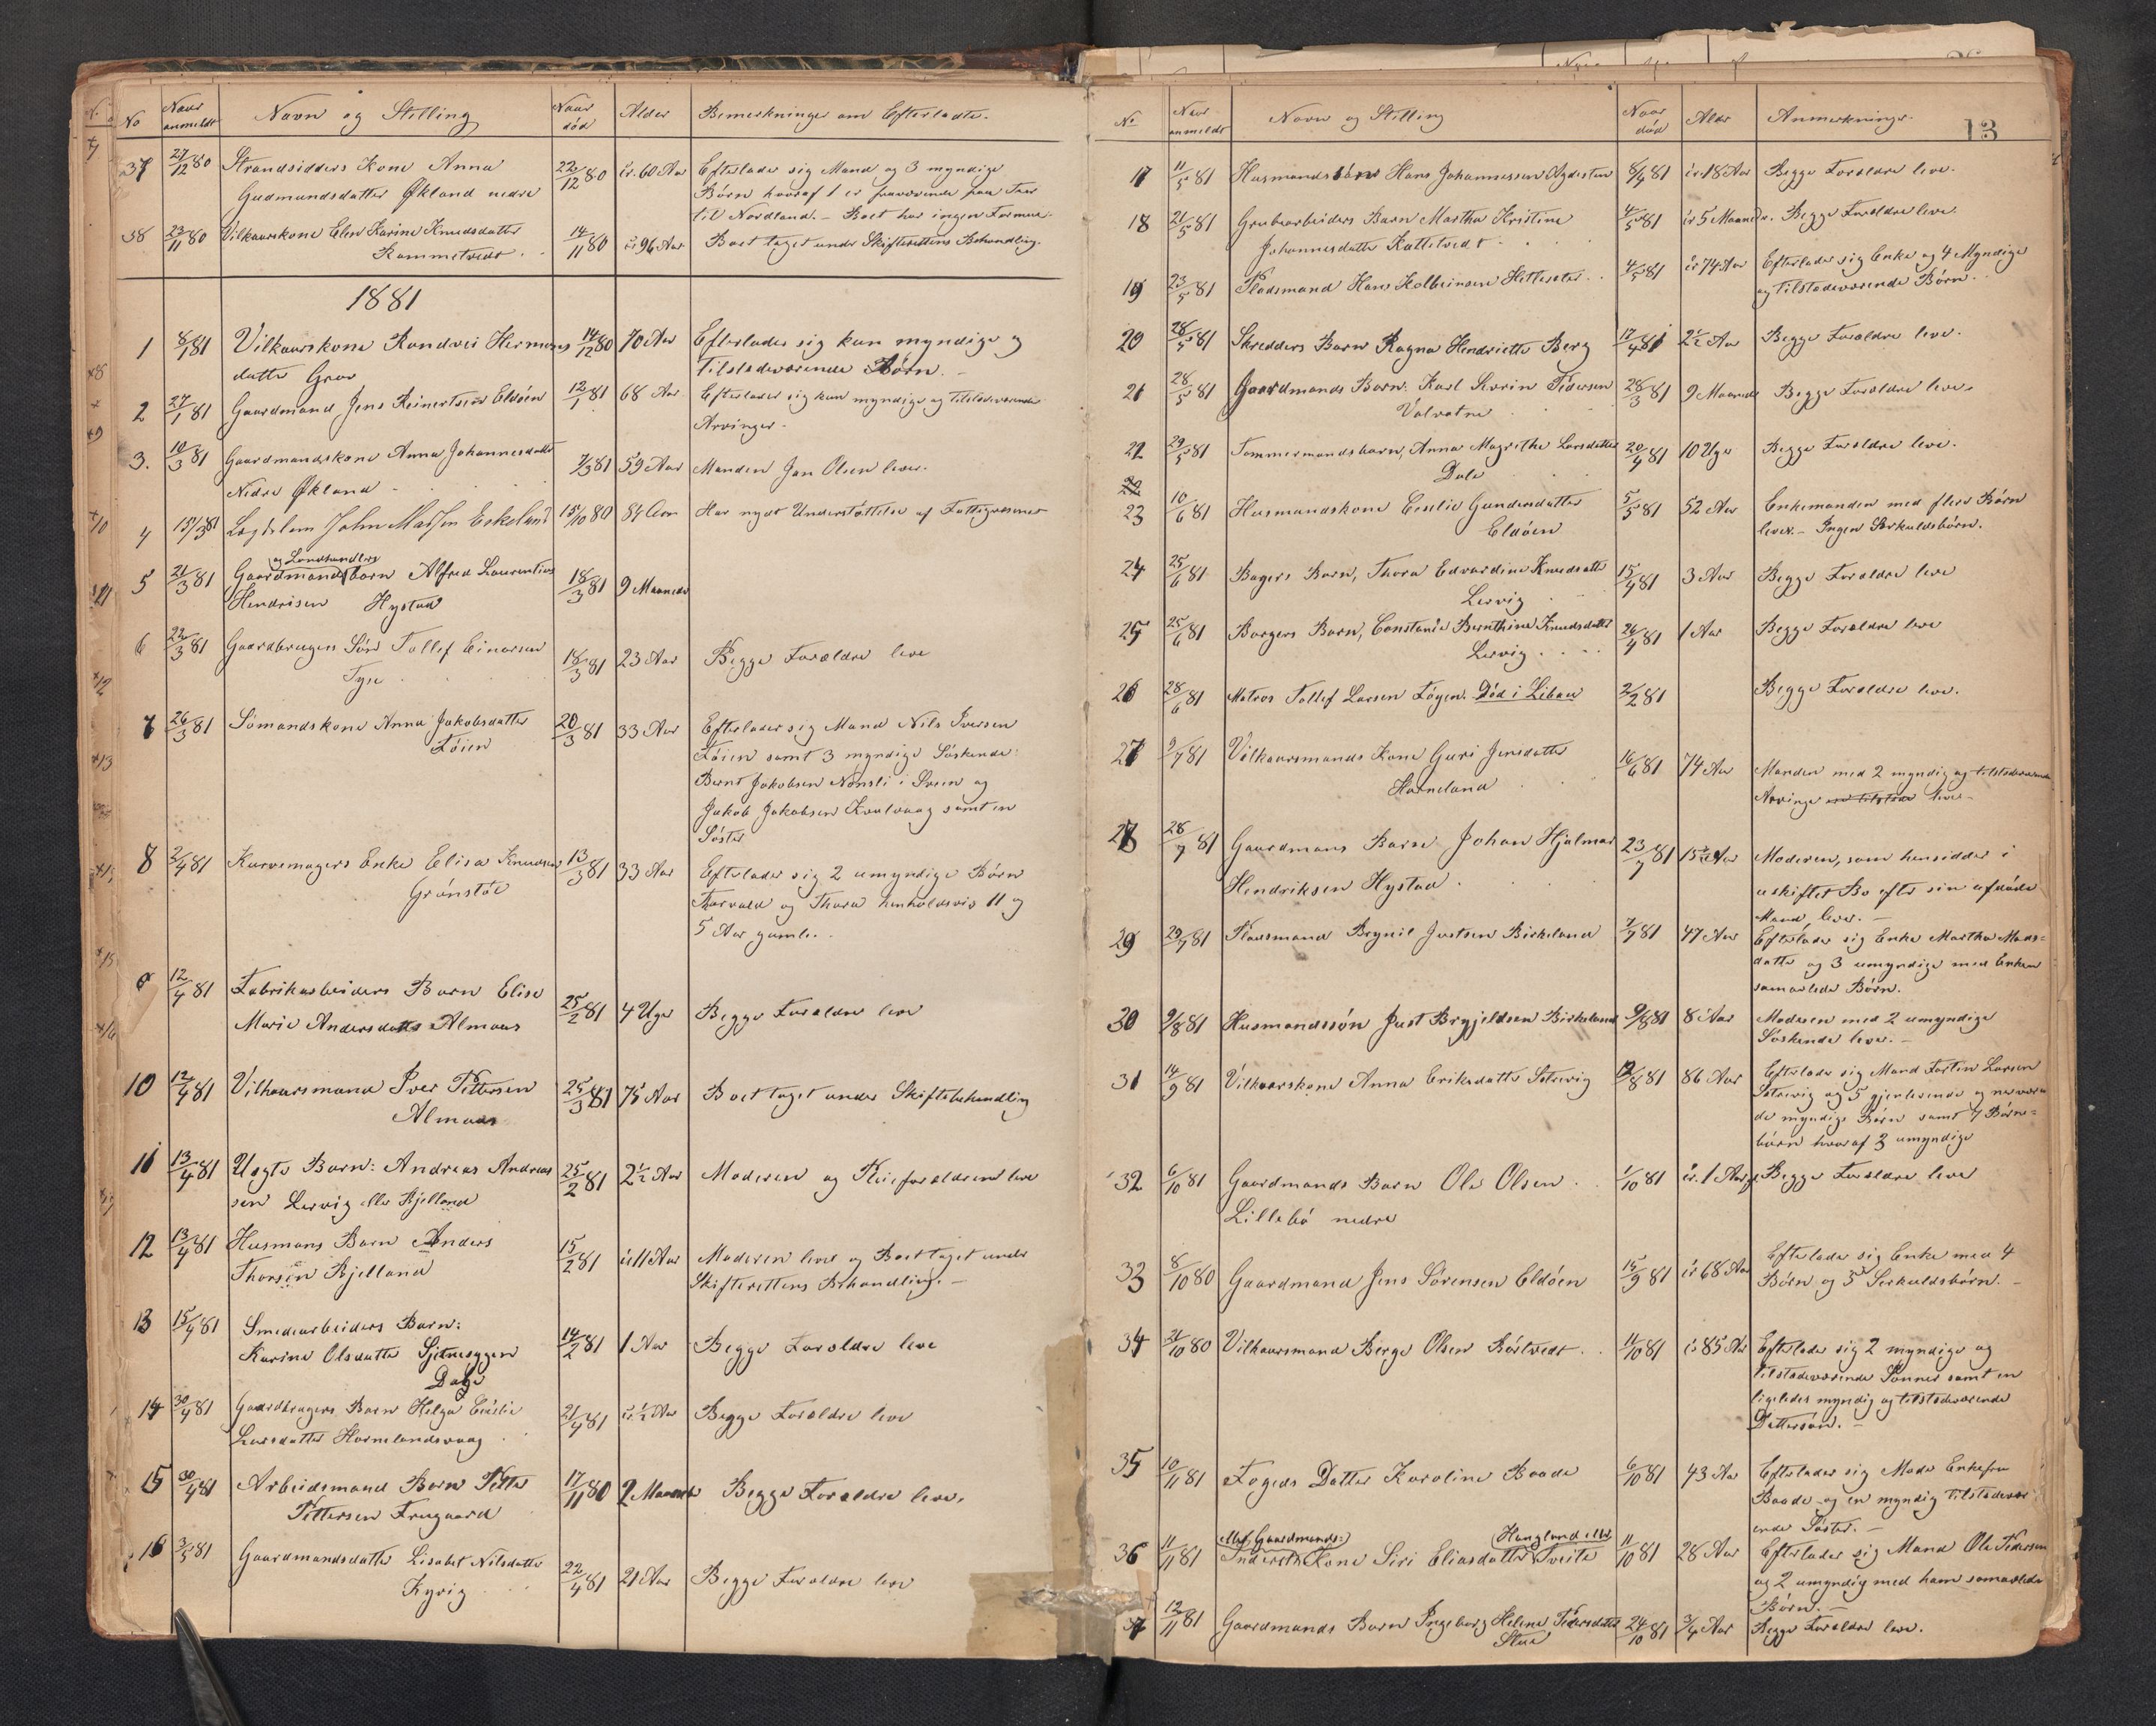 No Naar anmeldt Navn og Stilling Naar død Alder Bemerkninger om Efterladte.
37 27/12 80 Strandsidders Kone Anna 22/12 80 ir. 60 Aar Efterlader sig Mand og 3 myndige
Gudmundsdatter Økland nedre Børn hvoraf 1 er fraværende paa Tur
til Nordland. – Boet har ingen Formue.
38 23/11 80 Vilkaarskone Elen Karine Knudsdatter 14/11 80 ir 96 Aar Boet taget under Skifterettens Behandling.
1881
1 8/1 81 Vilkaarskone Rondvei Hermans 14/12 80 70 Aar Efterlader sig kun myndige og
datter Grov tilstedeværende Børn. –
2 27/1 81 Gaardmand Jens Reinertsen Eldøen 12/1 81 68 Aar Efterlader sig kun myndige og tilstedeværende
Arvinger –
3. 10/3 81 Gaardmandskone Anna Johannesdatter 7/3 81 59 Aar Manden Jan Olsen lever.
Nedre Økland –
4 15/3 81 Lægdslem John Madsen Eskeland 15/10 80 84 Aar Har nydt Understøttelse af Fattigvæsenet
og Landhandlers
5 21/3 81 Gaardmandsbarn Alfred Laurentius 18/3 81 9 Maaneder
Hendrisen Hystad
6 22/3 81 Gaardbrugers Søn Tollef Einarsen 18/3 81 23 Aar Begge Forældre leve
Tyse
7 26/3 81 Sømandskone Anna Jakobsdatter 20/3 81 33 Aar Efterlader sig Mand Nils Iversen
Føien Føien samt 3 myndige Søskende:
Bernt Jakobsen Nønsli i Sveen og
Jakob Jakobsen Kvalvaag samt en
Søster
8 2/4 81 Kurvemagers Enke Elisa Knudsen 13/3 81 33 Aar Efterlader sig 2 umyndige Børn
Grønstøe Thorvald og Thora henholdsvis 11 og
5 Aar gamle.
9 12/4 81 Fabrikarbeiders Barn Elise 25/2 81 4 Uger Begge Forældre leve
Marie Andersdatter Almaas
10 12/4 81 Vilkaarsmand Iver Pettersen 25/3 81 75 Aar Boet taget under Skiftebehandling
Almaas
11 13/4 81 Uægte Barn: Andreas Andreas 25/2 81 2½ Aar Moderen og Pleieforældrene leve
sen Lervig eller Kjelland
12 13/4 81 Husmans Barn Anders 15/2 81 ir 11 Aar Moderen lever og Boet taget under
Thorsen Kjelland Skifterettens Behandling. –
13 15/4 81 Smedearbeiders Barn: 14/2 81 1 Aar Begge Forældre leve
Karine Olsdatter
Dale
14 30/4 81 Gaardbrugers Barn Helga Cecilie 21/4 81 ir. ½ Aar Begge Forældre leve
Larsdatter Hornelandsvaag
15 30/4 81 Arbeidsmand Barn Petter 17/11 80 2 Maaneder Begge Forældre leve.
Pettersen Frugaard
16 3/5 81 Gaardmandsdatter Lisabet Nilsdatter 22/4 81 21 Aar Begge Forældre leve
Kyvig
No Naar anmeldt Navn og Stilling Naar død Alder Anmerkninger. 13
17 11/5 81 Husmandssøn Hans Johannessen Agdesten 8/4 81 ir. 18 Aar Begge Forældre leve.
18 21/5 81 Grubearbeiders Barn Martha Kristine 4/5 81 ir 5 Maaneder. Begge Forældre leve.
Johannesdatter Kattetvedt
19 23/5 81 Pladsmand Hans Kolbeinsen Hetleseter 4/5 81 ir 74 Aar Efterlader sig Enke og 4 Myndige
og tilstedeværende Børn.
20 28/5 81 Skredders Barn Ragna Hendriette Berg 17/4 81 2½ Aar Begge Forældre leve.
21 28/5 81 Gaardmands Barn: Karl Severin Pedersen 28/3 81 9 Maaneder Begge Forældre leve.
Valvatne
22 29/5 81 Tommermandsbarn, Anna Magrethe Larsdatter 20/4 81 10 Uger Begge Forældre leve.
Dale
23 10/6 81 Husmandskone Ceselie Gundersdatter 5/5 81 52 Aar Enkemanden med flere Børn
Eldøen lever. – Ingen Særkuldsbørn.
24 25/6 81 Bagers Barn, Thora Edvardine Knudsdatter 15/4 81 3 Aar Begge Forældre leve
Lervig
25 25/6 81 Borgers Barn, Constanse Bernthine Knudsdatter 26/4 81 1 Aar Begge Forældre leve
Lervig
26 28/6 81 Matros Tollef Larsen Føyen. Død i Libau 2/2 81 Begge Forældre leve.
27 9/7 81 Vilkaarsmands Kone Guri Jensdatter 16/6 81 74 Aar Manden med 2 myndig og tilstedeværende
Horneland Arvinger er tilstede lever
28 28/7 81 Gaardmans Barn Johan Hjalmar 23/7 81 Moderen, som hensidder i
Hendriksen Hystad uskiftet Bo efter sin afdøde
Mand, lever. –
29 29/7 81 Pladsmand Brynil Justsen Birkeland 7/7 81 47 Aar Efterlader sig Enke Martha Mads-
datter og 3 umyndige med Enken
samavlede Børn.
30 9/8 81 Husmandssøn Just Brygjeldsen Birkeland 9/8 81 8 Aar Moderen med 2 umyndige
Søskende lever. –
31 14/9 81 Vilkaarskone Anna Eriksdatter Setrevig 86 Aar Efterlader sig Mand Fartin Larsen
Setrevig og 5 gjenlevende og nærværen
de myndige Børn samt 7 Børne-
børn hvoraf 3 umyndige
32 6/10 81 Gaardmands Barn Ole Olsen 1/10 81 ir. 1 Aar Begge Forældre leve
Lillebø nedre
33 8/10 80 Gaardmand Jens Sørensen Eldøen 15/9 81 ir 68 Aar Efterlader sig Enke med 4
Børn og 5 Serkuldsbørn. –
34 21/10 80 Vilkaarsmand Berge Olsen Børtvedt 11/10 81 ir 85 Aar Efterlader sig 2 myndige og
tilstedeværende Sønner samt en
ligeledes myndig og tilstedeværende
Dattersøn. –
35 10/11 81 Fogeds Datter Karoline Baade 6/10 81 43 Aar Efterlader sig Moder Enkefru
Baade og en myndig tilstedevær
ende Søster. –
eller Gaardmands: Haugland eller
36 11/11 81 Inderste Kone Siri Eliasdatter Tveite 11/10 81 28 Aar Efterlader sig Mand Ole Pedersen
og 2 umyndig med ham samavlede
Børn. –
37 12/11 81 Gaardmands Barn Ingeborg Helene Pedersdatter 24/10 81 3/4 Aar Begge Forældre leve.
Stue